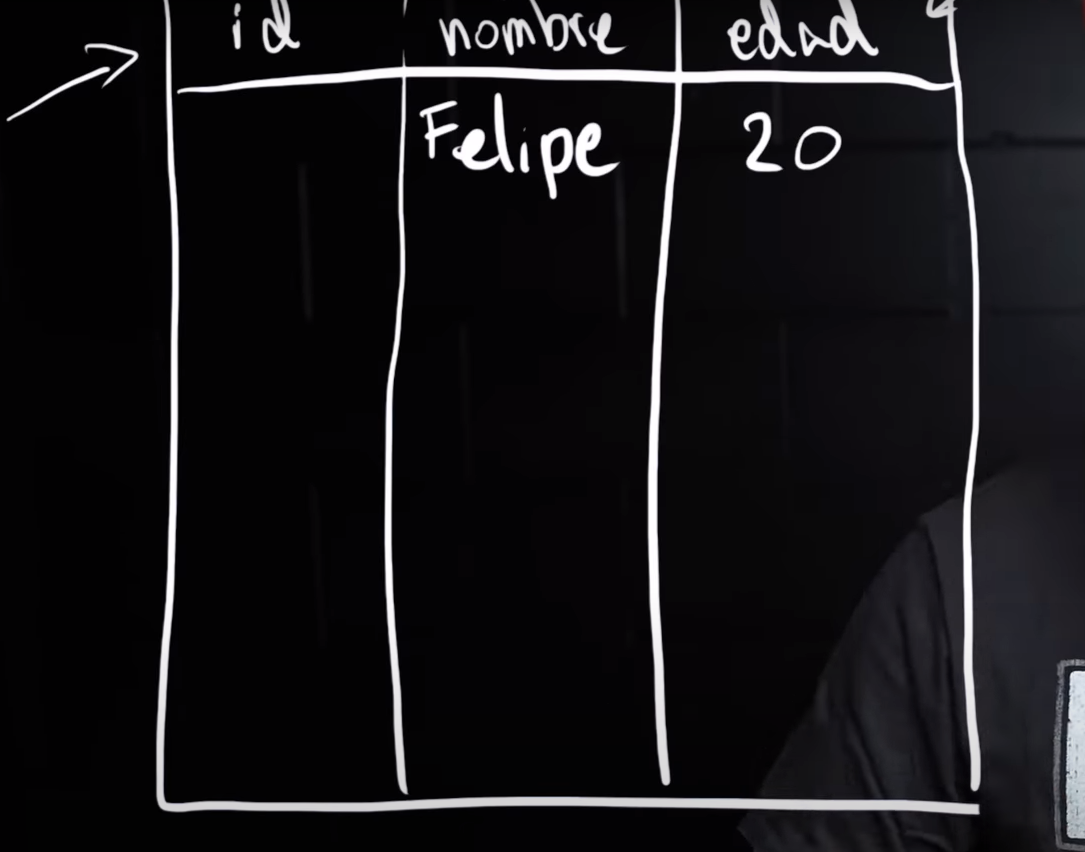 id nombre edad
Felipe 20